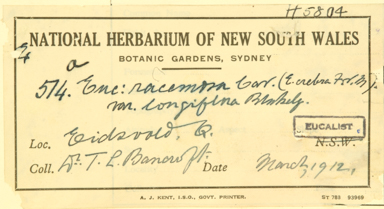 H5804
NATIONAL HERBARIUM OF NEW SOUTH WALES
BOTANIC GARDENS, SYDNEY
a
514. Euc: racemosa Cav. (E. crebra F.v.M.).
var. longiflora Blakely.
EUCALIST
Loc. Eidsvold, Q. N.S.W.
Coll. Dr. T. L. Bancroft. Date March, 1912.
A. J. KENT, I.S.O., GOVT. PRINTER. SY 783 93969